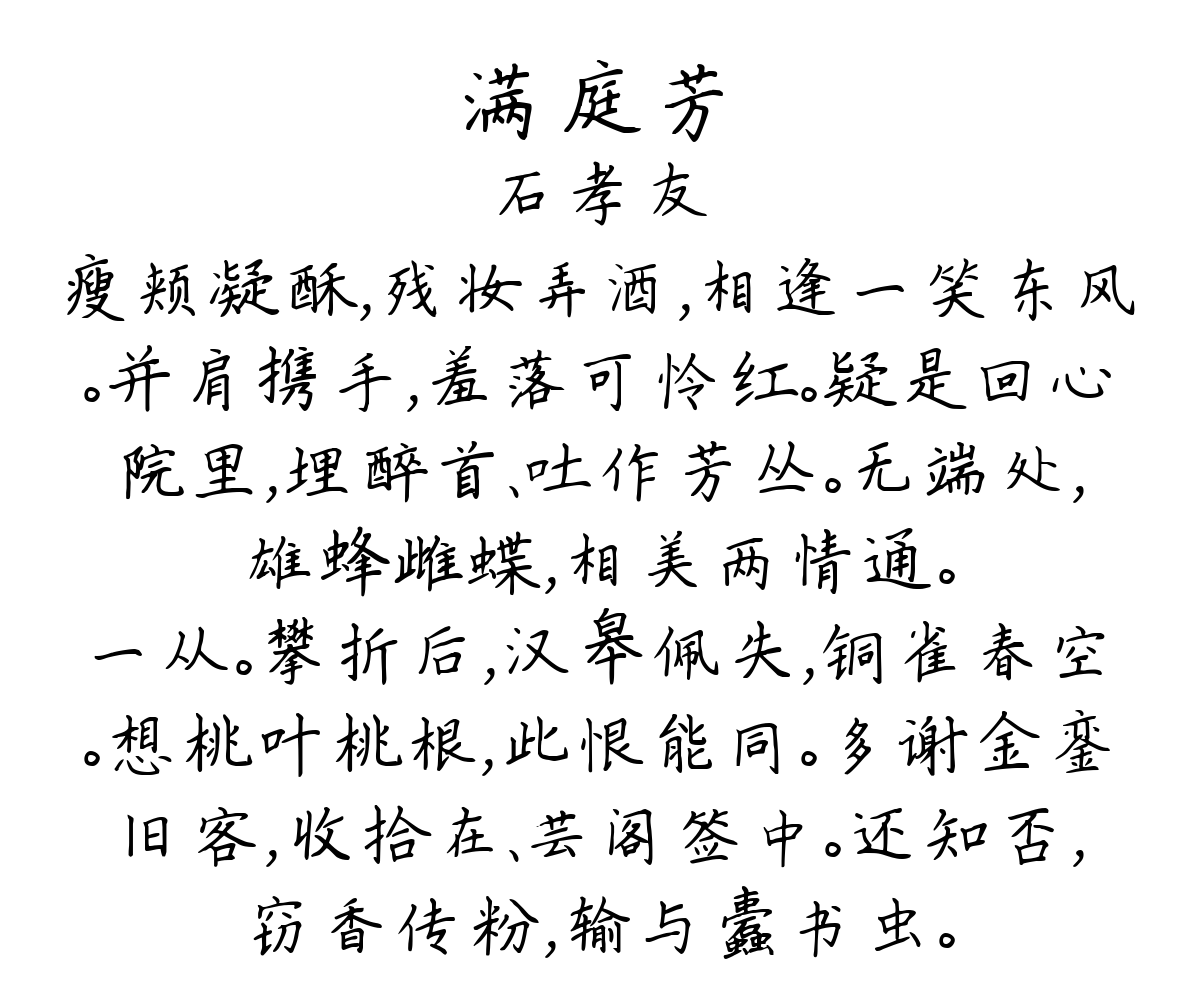 满庭芳
石孝友
瘦颊凝酥,残妆弄酒,相逢一笑东风
。并肩携手,羞落可怜红。疑是回心
院里,埋醉首、吐作芳丛。无端处,
雄蜂雌蝶,相美两情通。
一从。攀折后,汉皋佩失,铜雀春空
。想桃叶桃根,此恨能同。多谢金銮
旧客,收拾在、芸阁签中。还知否,
窃香传粉,输与蠹书虫。